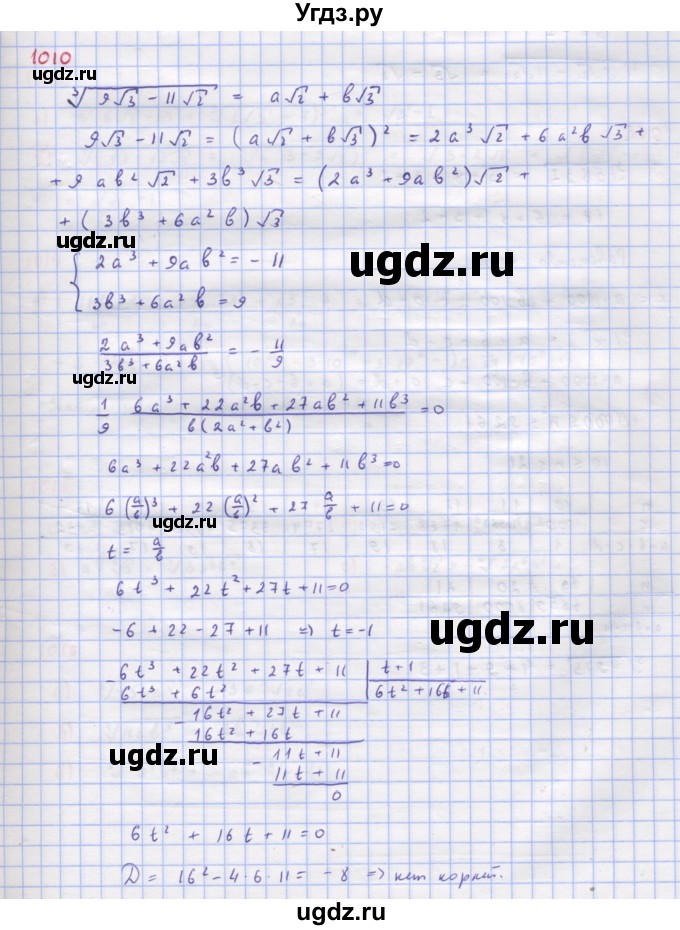 Угдз.ру
1010
ugdz.ru
∛(9√3 − 11√2) = a√2 + b√3
9√3 − 11√2 = (a√2 + b√3)² = 2a³√2 + 6a²b√3 +
+ 9ab²√2 + 3b³√3 = (2a³ + 9ab²)√2 +
+ (3b³ + 6a²b)√3
ugdz.ru
ugdz.ru
{ 2a³ + 9ab² = −11
3b³ + 6a²b = 9
(2a³ + 9ab²)/(3b³ + 6a²b) = − 11/9
ugdz.ru
1/9 (6a³ + 22a²b + 27ab² + 11b³)/(b(2a² + b²)) = 0
6a³ + 22a²b + 27ab² + 11b³ = 0
6(a/b)³ + 22(a/b)² + 27 a/b + 11 = 0
ugdz.ru
t = a/b
6t³ + 22t² + 27t + 11 = 0
−6 + 22 − 27 + 11 ⇒ t = −1
ugdz.ru
− 6t³ + 22t² + 27t + 11 | t + 1
6t³ + 6t² | 6t² + 16t + 11
− 16t² + 27t + 11
16t² + 16t
ugdz.ru
− 11t + 11
11t + 11
0
6t² + 16t + 11 = 0
D = 16² − 4·6·11 = −8 ⇒ нет корней.
ugdz.ru
ugdz.ru